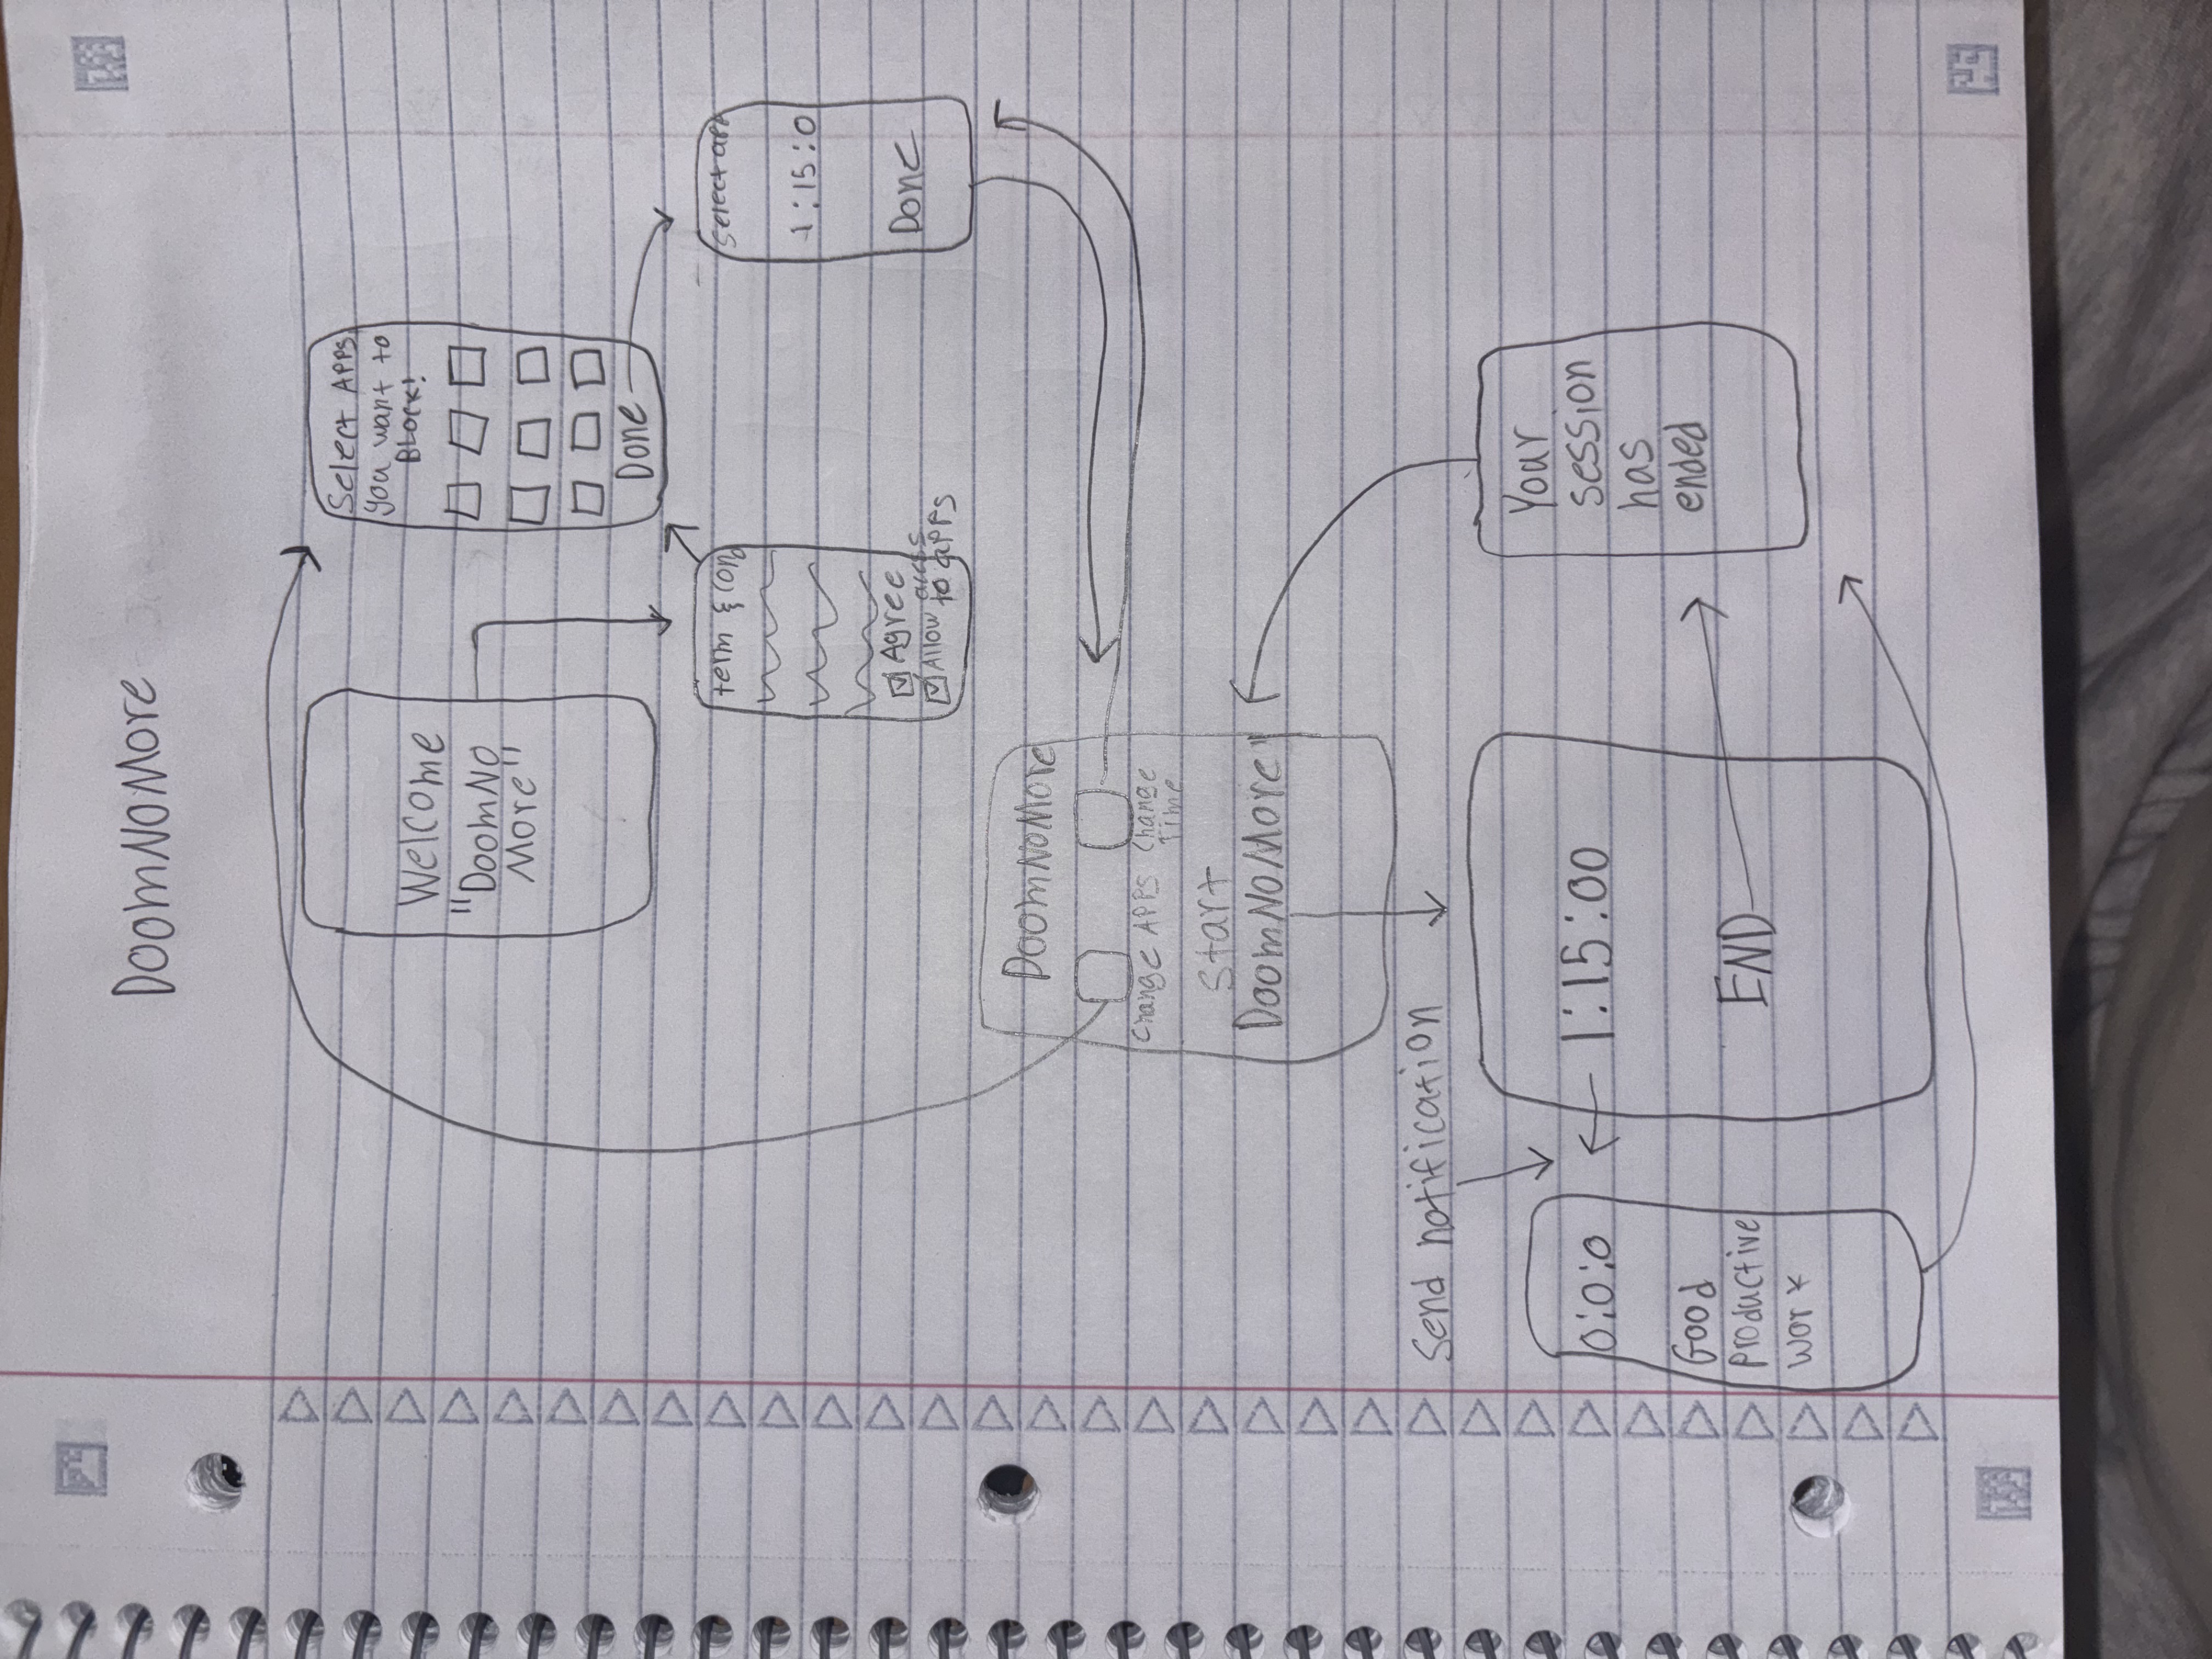 DoomNoMore
Welcome
"DoomNo
More"
Select APPS
you want to
Block!
Done
term & Cond
Agree
Allow acess
to apps
Select app
1:15:0
Done
DoomNoMore
Change APPS
Change
Time
Start
DoomNoMore
Send notification
0:0:0
Good
productive
work
1:15:00
END
Your
session
has
ended